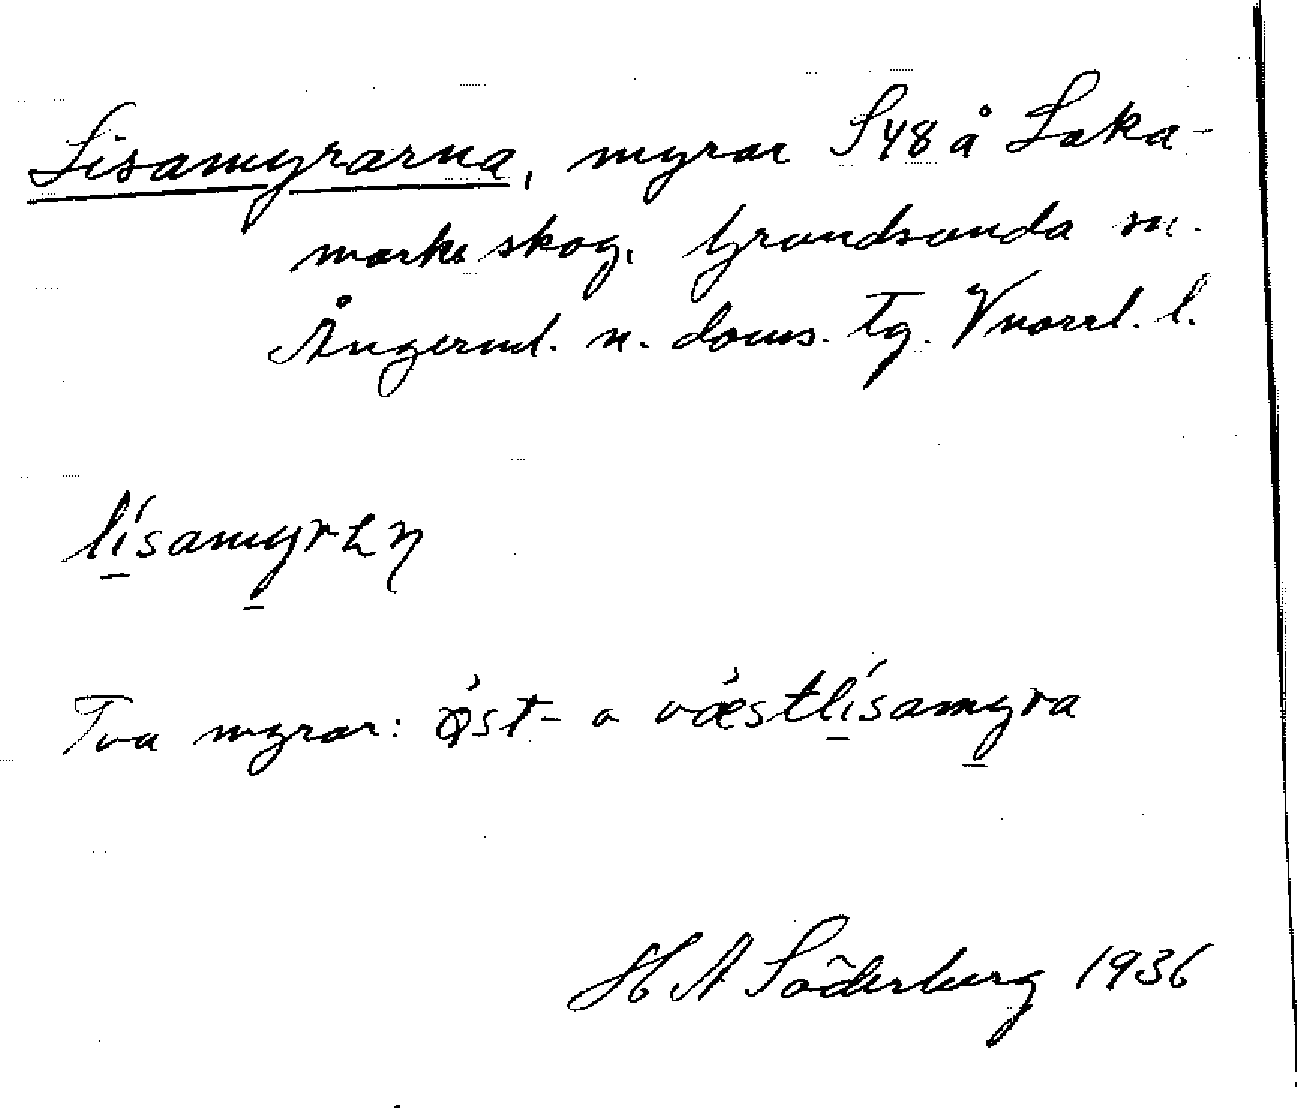 Lisamyrarna, myrar S 48 å Laka-
marks skog, Grundsunda sn.
Ångerml. n. doms. tg. Vnorrl. l.
lísamyrαɳ
Två myrar: ǿst- o vǽstlísamyra
H A Söderberg 1936